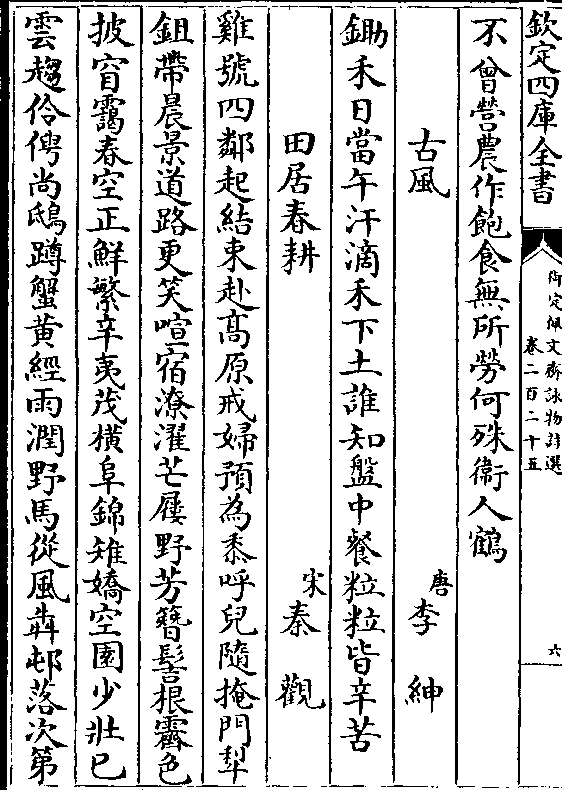 欽定四庫全書
御定佩文齋詠物詩選
卷二百二十五
六
不曾營農作飽食無所勞何殊衞人鶴
古風
唐李紳
鋤禾日當午汗滴禾下土誰知盤中餐粒粒皆辛苦
田居春耕
宋秦觀
雞號四鄰起結束赴高原戒婦預為黍呼兒隨掩門犁
鉏帶晨景道路更笑喧宿潦濯芒屨野芳簪髻根霽色
披窅靄春空正鮮繁辛夷茂橫阜錦雉嬌空園少壯已
雲趨伶俜尚鴟蹲蟹黄經雨潤野馬從風犇邨落次第